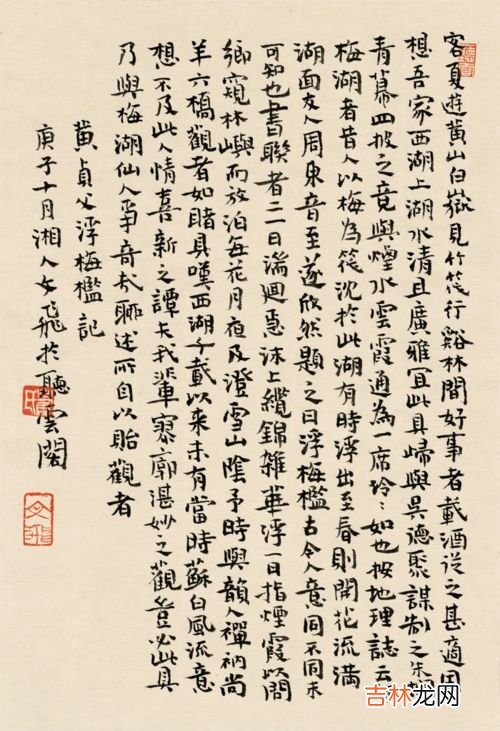 客夏遊黄山白嶽見竹筏行谿林間好事者載酒從之甚適因
想吾家西湖上湖水清且廣雅宜此具歸與吳德聚謀制之朱欄
青幕四披之竟與煙水雲霞通為一席泠〻如也按地理誌云
梅湖者昔人以梅為筏沈於此湖有時浮出至春則開花流滿
湖面友人周東音至遂欣然題之曰浮梅檻古今人意同不同未
可知也書聯者二一曰湍迴急沫上纜錦雜華浮一曰指煙霞以問
鄉窺林嶼而放泊每花月夜及澄雪山陰予時與韻人禪衲尚
羊六橋觀者如賭具嘆西湖千載以來未有當時蘇白風流意
想不及此人情喜新之譚夫我輩寥廓湛妙之觀豈必此具
乃與梅湖仙人爭奇哉聊述所自以貽觀者
黄貞父浮梅檻記
庚子十月湘人文飛於聽雲閣
文飛
吉林龙网